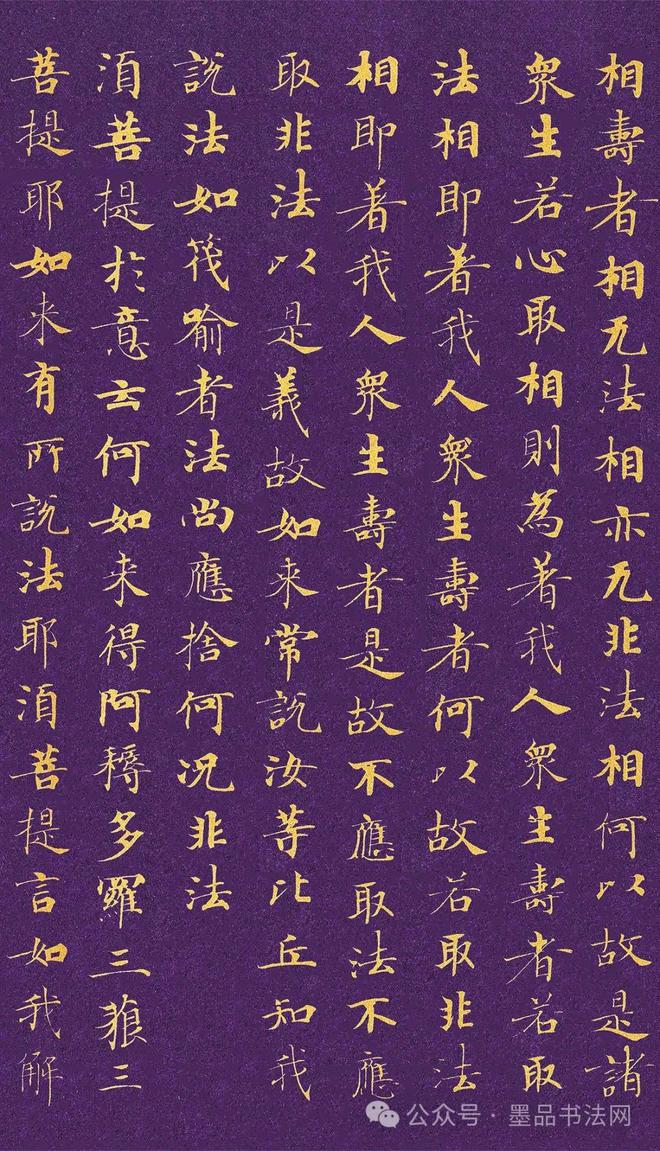 相壽者相无法相亦无非法相何以故是諸
衆生若心取相則為著我人衆生壽者若取
法相即著我人衆生壽者何以故若取非法
相即著我人衆生壽者是故不應取法不應
取非法以是義故如来常說汝等比丘知我
說法如筏喻者法尚應捨何况非法
湏菩提於意云何如来得阿耨多羅三藐三
菩提耶如来有所說法耶湏菩提言如我解
公众号·墨品书法网